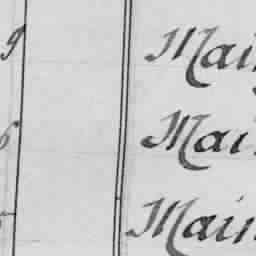 9 Mai
6 Mai
Main